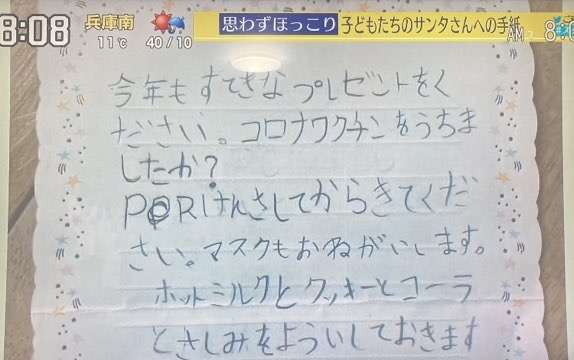 8:08 兵庫南 思わずほっこり 子どもたちのサンタさんへの手紙
11℃ 40/10 AM
今年もすてきなプレゼントをく
ださい。コロナワクチンをうちま
したか?
PCRけんさしてからきてくだ
さい。マスクもおねがいします。
ホットミルクとクッキーとコーラ
とさしみをよういしておきます